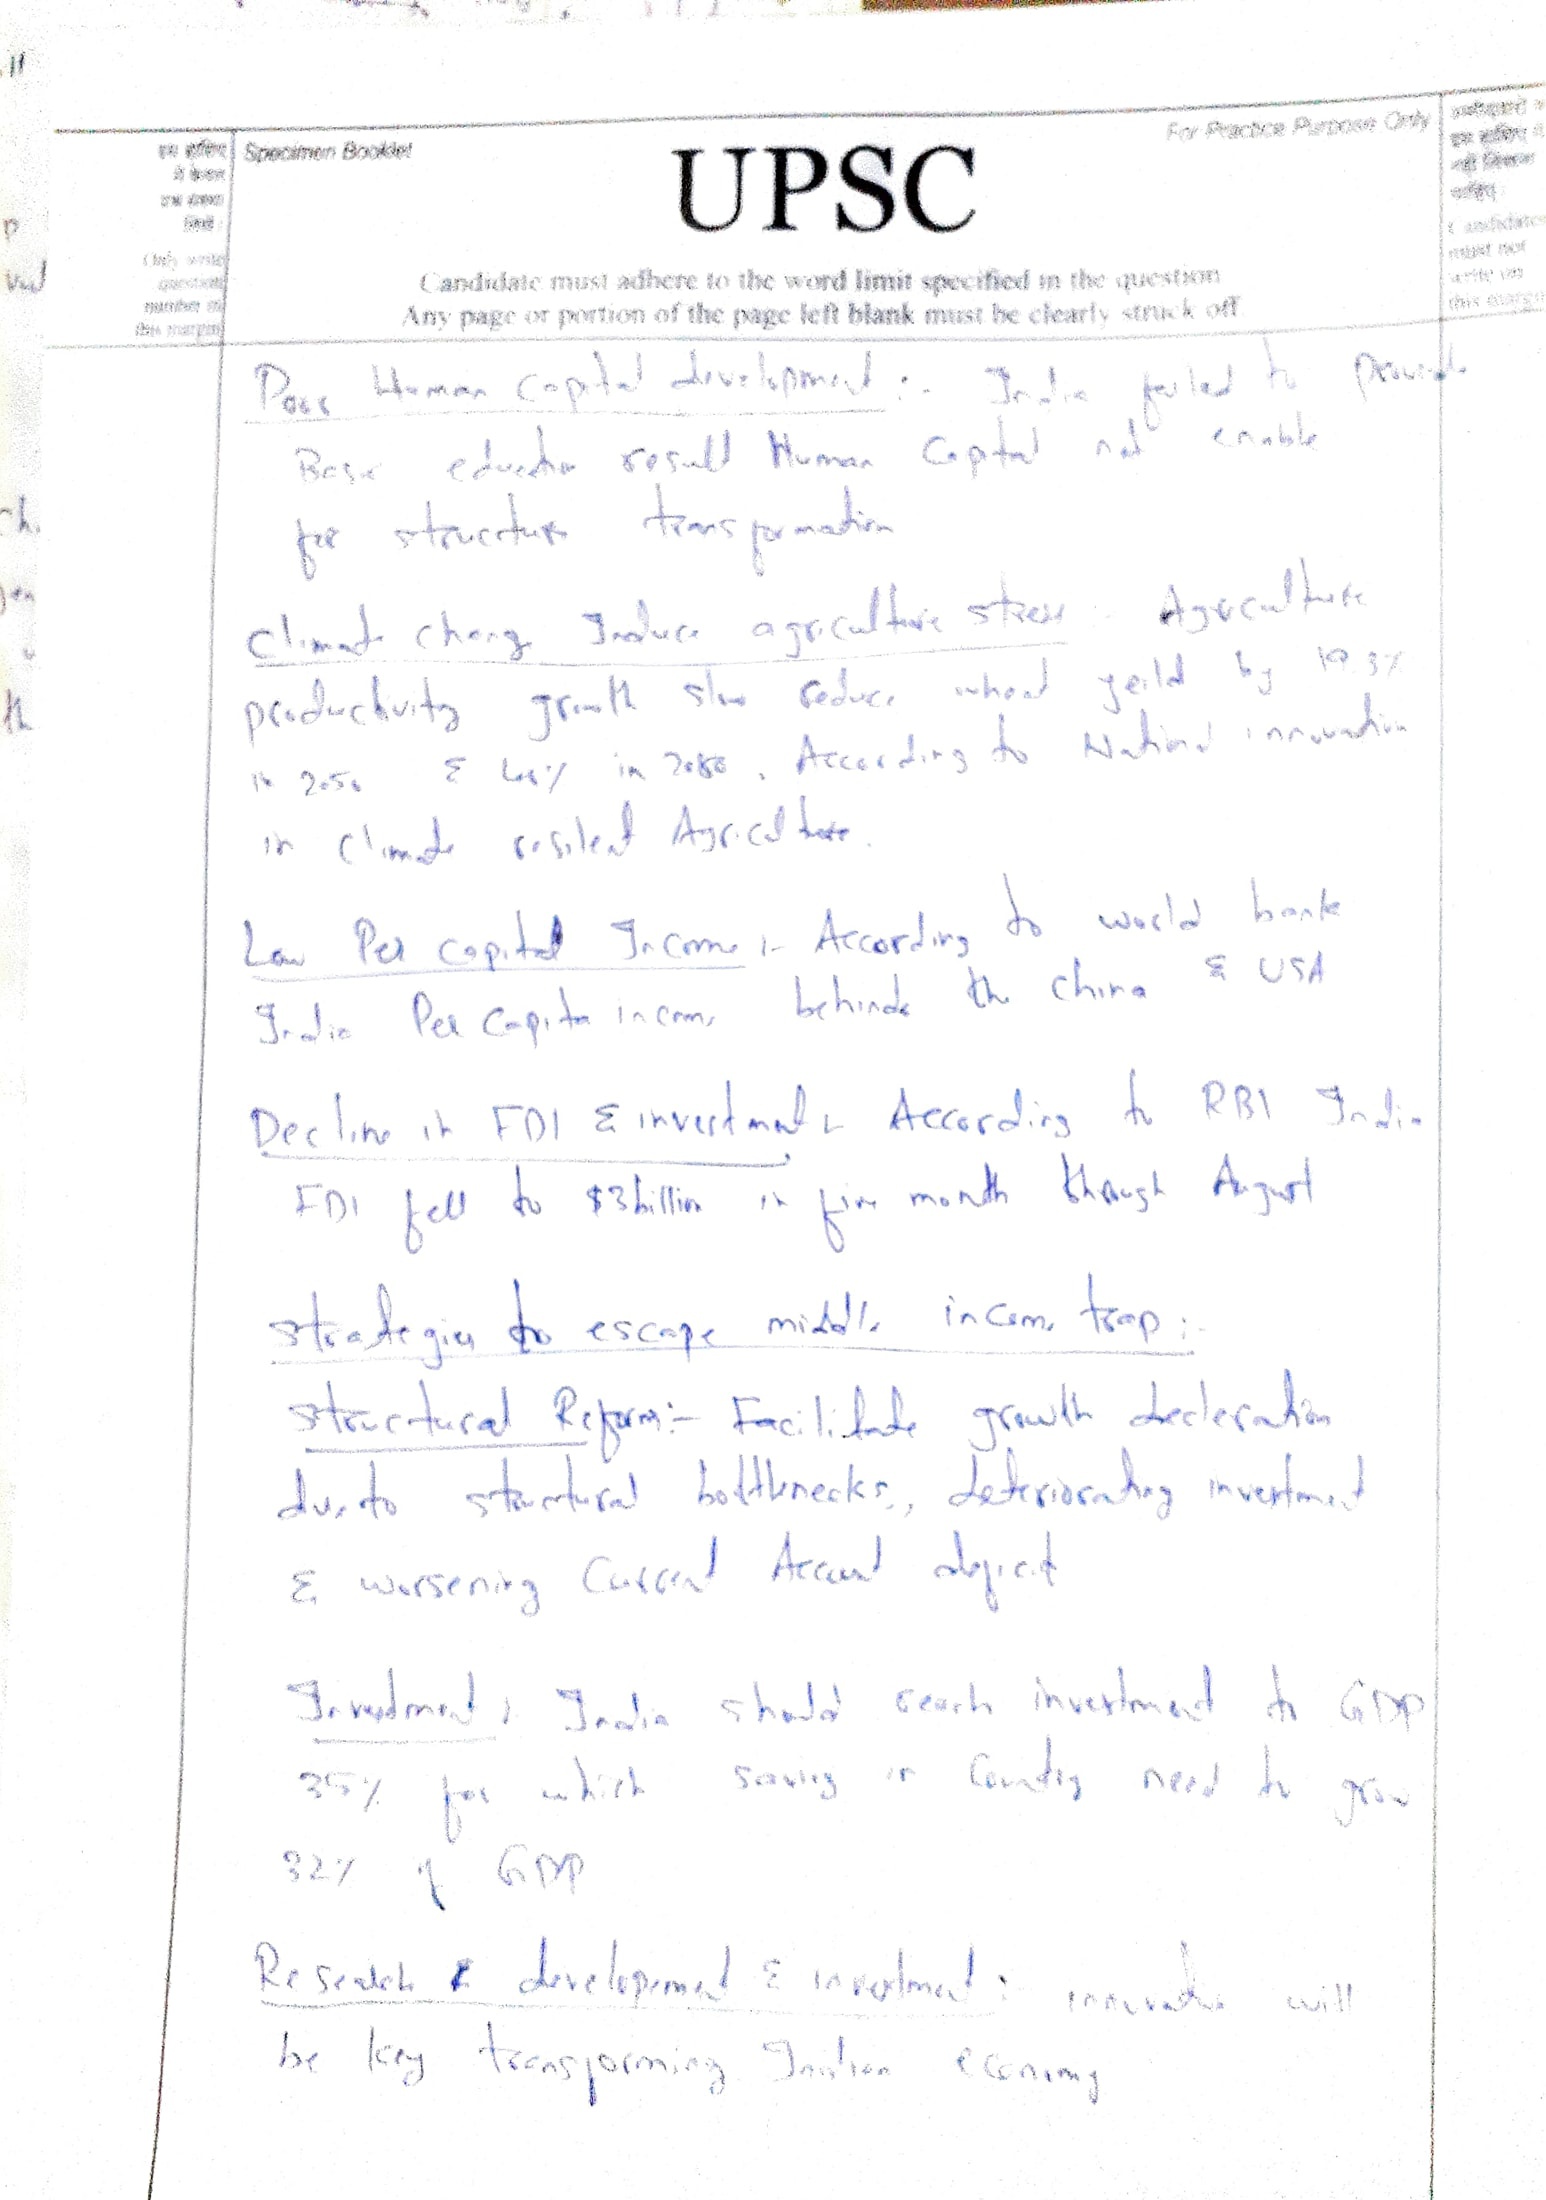 Specimen Booklet
For Practice Purpose Only
UPSC
Candidate must adhere to the word limit specified in the question
Any page or portion of the page left blank must be clearly struck off
Only write
question
number in
this margin
Candidates
must not
write on
this margin
Poor Human Capital development :- India failed to provide
Basic education result Human Capital not enable
for structure transformation
Climate chang Induce agriculture stress : Agriculture
productivity growth slow reduce wheat yeild by 19.3%
in 2050 & % in 2080. According to National innovation
in climate resilent Agriculture.
Low Per capital Income :- According to world bank
India Per Capita income behinde the china & USA
Decline in FDI & investment :- According to RBI India
FDI fell to $3billion in five month through August
Strategies to escape middle income trap :-
Structural Reform :- Facilitate growth decleration
due to structural bottlenecks, deteriorating investment
& worsening Current Account deficit
Investment : India should reach investment to GDP
35% for which saving in Country need to grow
32% of GDP
Research & development & investment : innovation will
be key transforming Indian economy